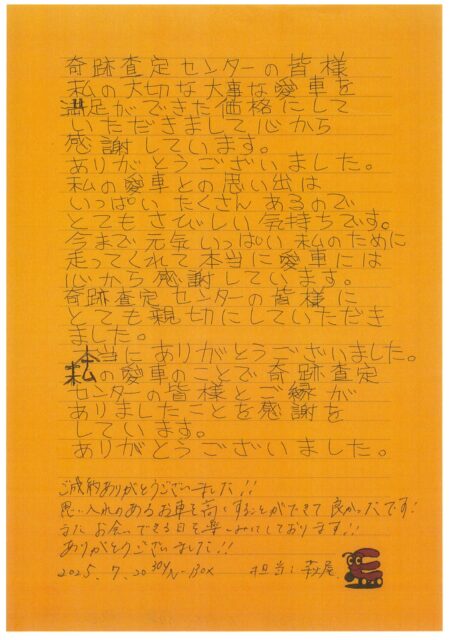 奇跡査定センターの皆様
私の大切な大事な愛車を
満足ができた価格にして
いただきまして心から
感謝しています。
ありがとうございました。
私の愛車との思い出は
いっぱいたくさんあるので
とてもさびしい気持ちです。
今まで元気いっぱい私のために
走ってくれて本当に愛車には
心から感謝しています。
奇跡査定センターの皆様に
とても親切にしていただき
ました。
本当にありがとうございました。
私の愛車のことで奇跡査定
センターの皆様とご縁が
ありましたことを感謝を
しています。
ありがとうございました。
ご成約ありがとうございました!!
思い入れのあるお車を高くすることができて良かったです!
またお会いできる日を楽しみにしております!!
ありがとうございました!!
2025.7.20 30y N-BOX 担当:萩尾